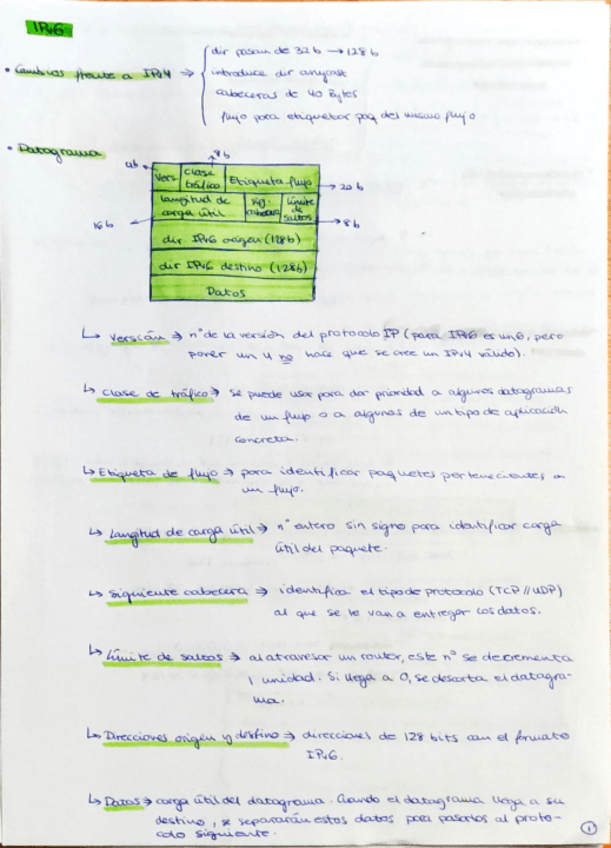 IPv6
dir pasan de 32b → 128b
• Cambios frente a IPv4 ⇒ introduce dir anycast
cabeceras de 40 Bytes
flujo para etiquetar paq del mismo flujo
• Datagrama
4b
8b
Vers
Clase tráfico
Etiqueta flujo
→ 20b
16b
longitud de carga útil
sig. cabecera
límite de saltos
→ 8b
dir IPv6 origen (128b)
dir IPv6 destino (128b)
Datos
↳ Versión ⇒ nº de la versión del protocolo IP (para IPv6 es un 6, pero
poner un 4 no hace que se cree un IPv4 válido).
↳ Clase de tráfico ⇒ se puede usar para dar prioridad a algunos datagramas
de un flujo o a algunos de un tipo de aplicación
concreta.
↳ Etiqueta de flujo ⇒ para identificar paquetes pertenecientes a
un flujo.
↳ Longitud de carga útil ⇒ nº entero sin signo para identificar carga
útil del paquete.
↳ Siguiente cabecera ⇒ identifica el tipo de protocolo (TCP // UDP)
al que se le van a entregar los datos.
↳ Límite de saltos ⇒ al atravesar un router, este nº se decrementa
1 unidad. Si llega a 0, se descarta el datagra-
ma.
↳ Direcciones origen y destino ⇒ direcciones de 128 bits con el formato
IPv6.
↳ Datos ⇒ carga útil del datagrama. Cuando el datagrama llega a su
destino, se separarán estos datos para pasarlos al proto-
colo siguiente.
1